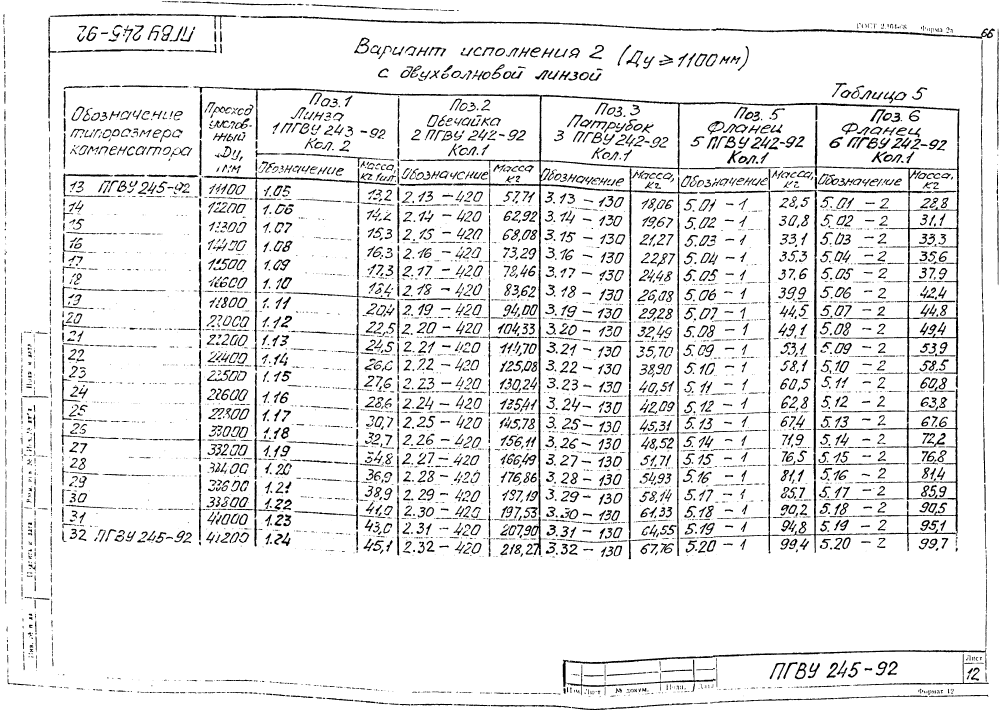 ПГВУ 245-92
ГОСТ 2.104-68 Форма 2а
66
Вариант исполнения 2 (Ду ≥ 1100 мм)
с двухволновой линзой
Таблица 5
Обозначение типоразмера компенсатора | Проход условный Ду, мм | Поз. 1 Линза 1 ПГВУ 243-92 Кол. 2 | Поз. 2 Обечайка 2 ПГВУ 242-92 Кол. 1 | Поз. 3 Патрубок 3 ПГВУ 242-92 Кол. 1 | Поз. 5 Фланец 5 ПГВУ 242-92 Кол. 1 | Поз. 6 Фланец 6 ПГВУ 242-92 Кол. 1
Обозначение | Масса, кг | Обозначение | Масса кг | Обозначение | Масса, кг | Обозначение | Масса, кг | Обозначение | Масса, кг
13 ПГВУ 245-92 | 1100 | 1.05 | 13,2 | 2.13-420 | 57,71 | 3.13-130 | 18,06 | 5.01-1 | 28,5 | 5.01-2 | 28,8
14 | 1200 | 1.06 | 14,2 | 2.14-420 | 62,92 | 3.14-130 | 19,67 | 5.02-1 | 30,8 | 5.02-2 | 31,1
15 | 1300 | 1.07 | 15,3 | 2.15-420 | 68,08 | 3.15-130 | 21,27 | 5.03-1 | 33,1 | 5.03-2 | 33,3
16 | 1400 | 1.08 | 16,3 | 2.16-420 | 73,29 | 3.16-130 | 22,87 | 5.04-1 | 35,3 | 5.04-2 | 35,6
17 | 1500 | 1.09 | 17,3 | 2.17-420 | 78,46 | 3.17-130 | 24,48 | 5.05-1 | 37,6 | 5.05-2 | 37,9
18 | 1600 | 1.10 | 18,4 | 2.18-420 | 83,62 | 3.18-130 | 26,08 | 5.06-1 | 39,9 | 5.06-2 | 42,4
19 | 1800 | 1.11 | 20,4 | 2.19-420 | 94,00 | 3.19-130 | 29,28 | 5.07-1 | 44,5 | 5.07-2 | 44,8
20 | 2000 | 1.12 | 22,5 | 2.20-420 | 104,33 | 3.20-130 | 32,49 | 5.08-1 | 49,1 | 5.08-2 | 49,4
21 | 2200 | 1.13 | 24,5 | 2.21-420 | 114,70 | 3.21-130 | 35,70 | 5.09-1 | 53,1 | 5.09-2 | 53,9
22 | 2400 | 1.14 | 26,6 | 2.22-420 | 125,08 | 3.22-130 | 38,90 | 5.10-1 | 58,1 | 5.10-2 | 58,5
23 | 2500 | 1.15 | 27,6 | 2.23-420 | 130,24 | 3.23-130 | 40,51 | 5.11-1 | 60,5 | 5.11-2 | 60,8
24 | 2600 | 1.16 | 28,6 | 2.24-420 | 135,41 | 3.24-130 | 42,09 | 5.12-1 | 62,8 | 5.12-2 | 63,8
25 | 2800 | 1.17 | 30,7 | 2.25-420 | 145,78 | 3.25-130 | 45,31 | 5.13-1 | 67,4 | 5.13-2 | 67,6
26 | 3000 | 1.18 | 32,7 | 2.26-420 | 156,11 | 3.26-130 | 48,52 | 5.14-1 | 71,9 | 5.14-2 | 72,2
27 | 3200 | 1.19 | 34,8 | 2.27-420 | 166,49 | 3.27-130 | 51,71 | 5.15-1 | 76,5 | 5.15-2 | 76,8
28 | 3400 | 1.20 | 36,9 | 2.28-420 | 176,86 | 3.28-130 | 54,93 | 5.16-1 | 81,1 | 5.16-2 | 81,4
29 | 3600 | 1.21 | 38,9 | 2.29-420 | 187,19 | 3.29-130 | 58,14 | 5.17-1 | 85,7 | 5.17-2 | 85,9
30 | 3800 | 1.22 | 41,0 | 2.30-420 | 197,53 | 3.30-130 | 61,33 | 5.18-1 | 90,2 | 5.18-2 | 90,5
31 | 4000 | 1.23 | 43,0 | 2.31-420 | 207,90 | 3.31-130 | 64,55 | 5.19-1 | 94,8 | 5.19-2 | 95,1
32 ПГВУ 245-92 | 4200 | 1.24 | 45,1 | 2.32-420 | 218,27 | 3.32-130 | 67,76 | 5.20-1 | 99,4 | 5.20-2 | 99,7
Изм. Лист № докум. Подп. Дата
ПГВУ 245-92
Лист
12
Формат 12